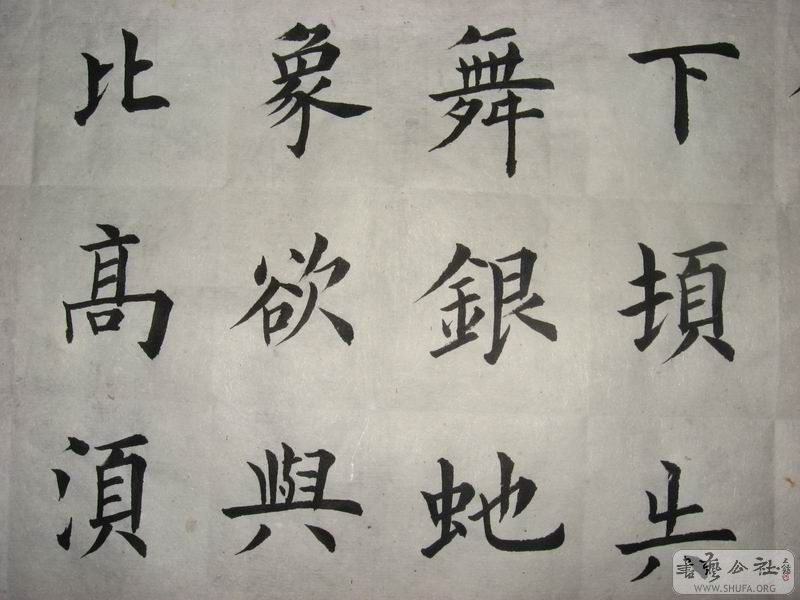 下頓失
舞銀虵
象欲與
比髙湏
書藝公社
WWW.SHUFA.ORG